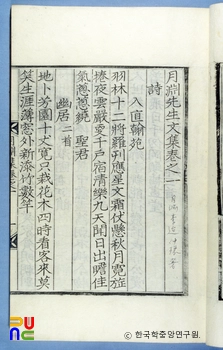 月淵先生文集卷之一
詩
入直翰苑
羽林十二將羅列應星文霜仗懸秋月霓旌
捲夜雲嚴更千戶宿淸樂九天聞日出瞻佳
氣葱葱繞 聖君
幽居 二首
地卜芳園十丈寬只栽花木四時看客來莫
笑生涯薄窓外新添竹數竿
PUNC
© 한국학중앙연구원